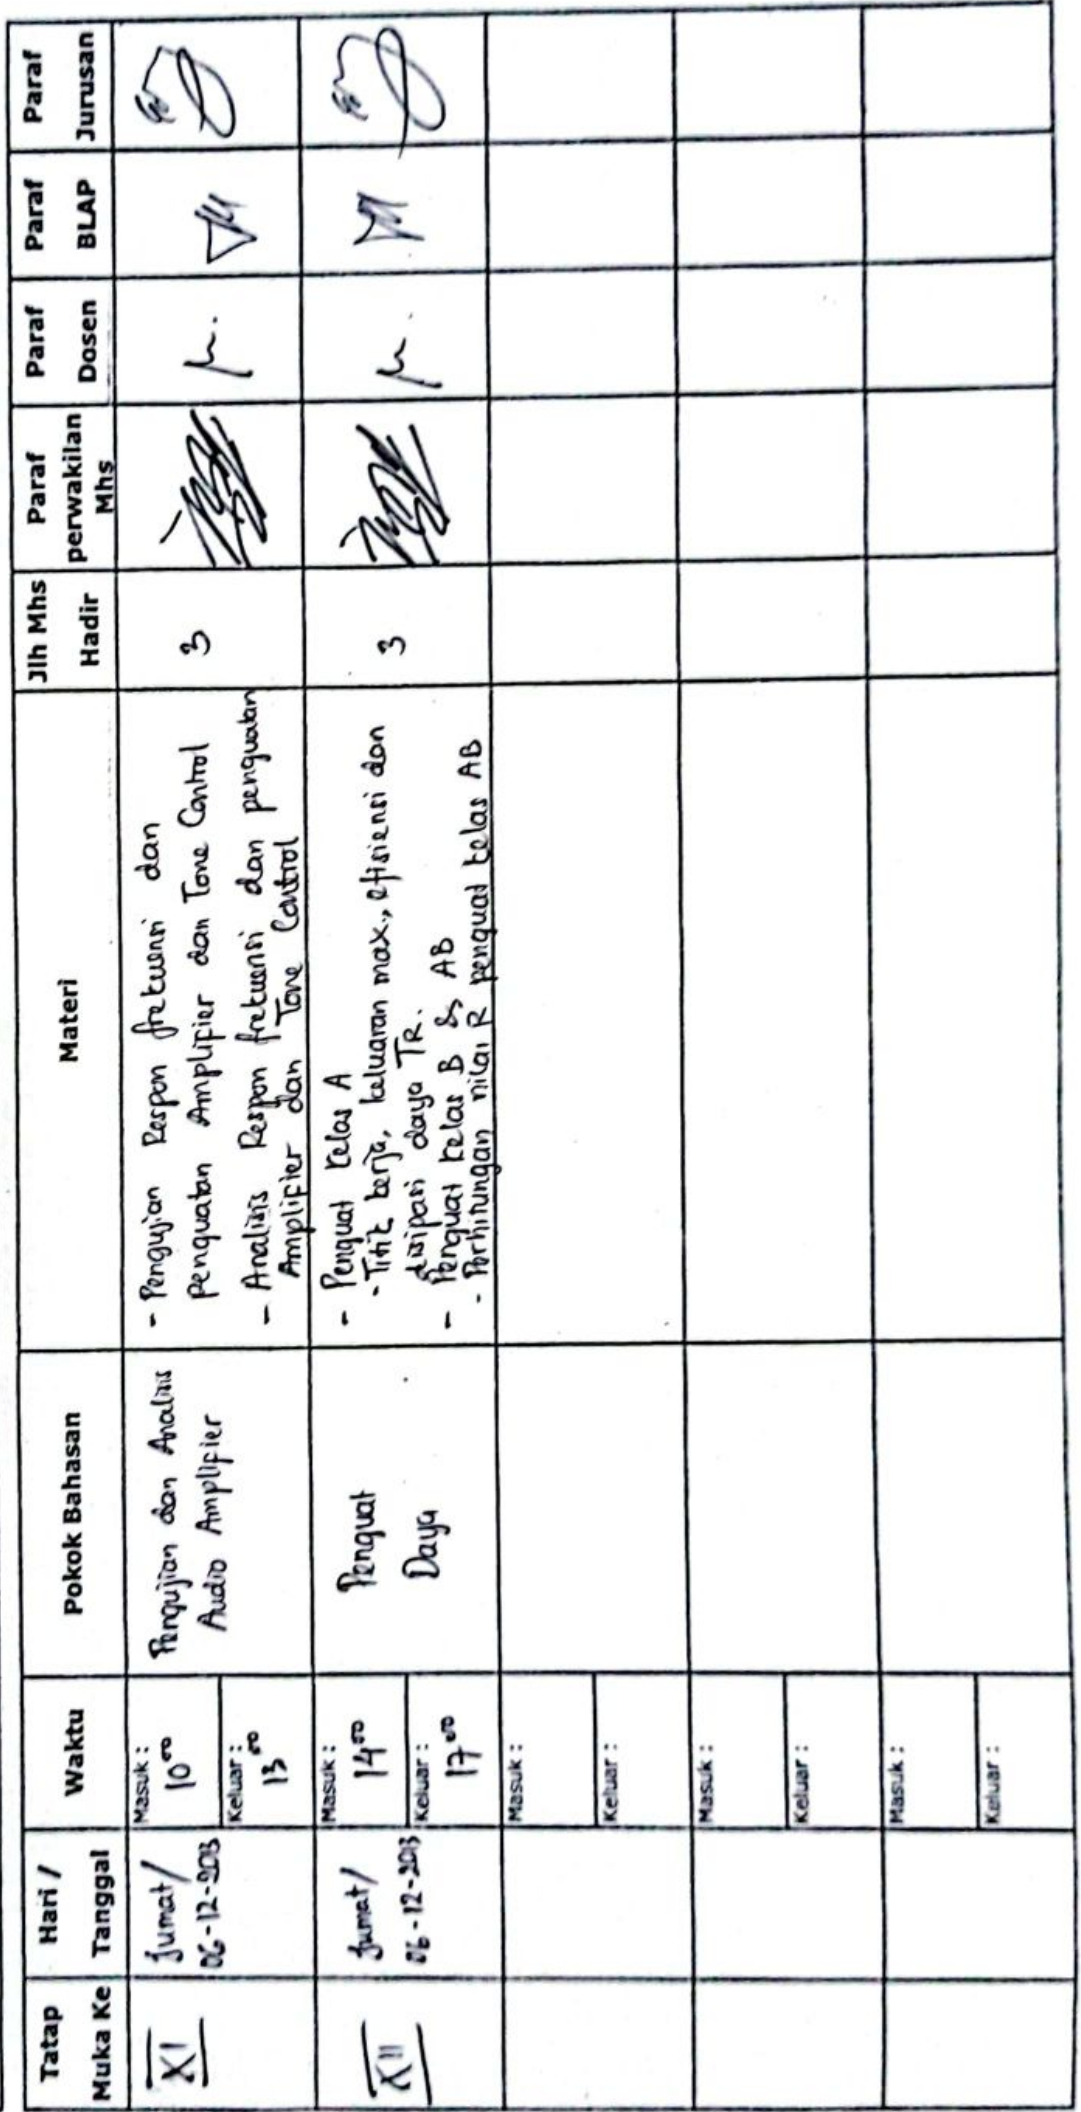 Tatap Muka Ke
Hari / Tanggal
Waktu
Pokok Bahasan
Materi
Jlh Mhs Hadir
Paraf perwakilan Mhs
Paraf Dosen
Paraf BLAP
Paraf Jurusan
XI
Jumat/
06-12-2013
Masuk :
10⁰⁰
Keluar :
13⁰⁰
Pengujian dan Analisis
Audio Amplifier
- Pengujian Respon frekuensi dan
penguatan Amplifier dan Tone Control
- Analisis Respon frekuensi dan penguatan
Amplifier dan Tone Control
3
XII
Jumat/
06-12-2013
Masuk :
14⁰⁰
Keluar :
17⁰⁰
Penguat
Daya
- Penguat kelas A
- Titik kerja, keluaran max., efisiensi dan
disipasi daya TR.
- Penguat kelas B & AB
- Perhitungan nilai R penguat kelas AB
3
Masuk :
Keluar :
Masuk :
Keluar :
Masuk :
Keluar :